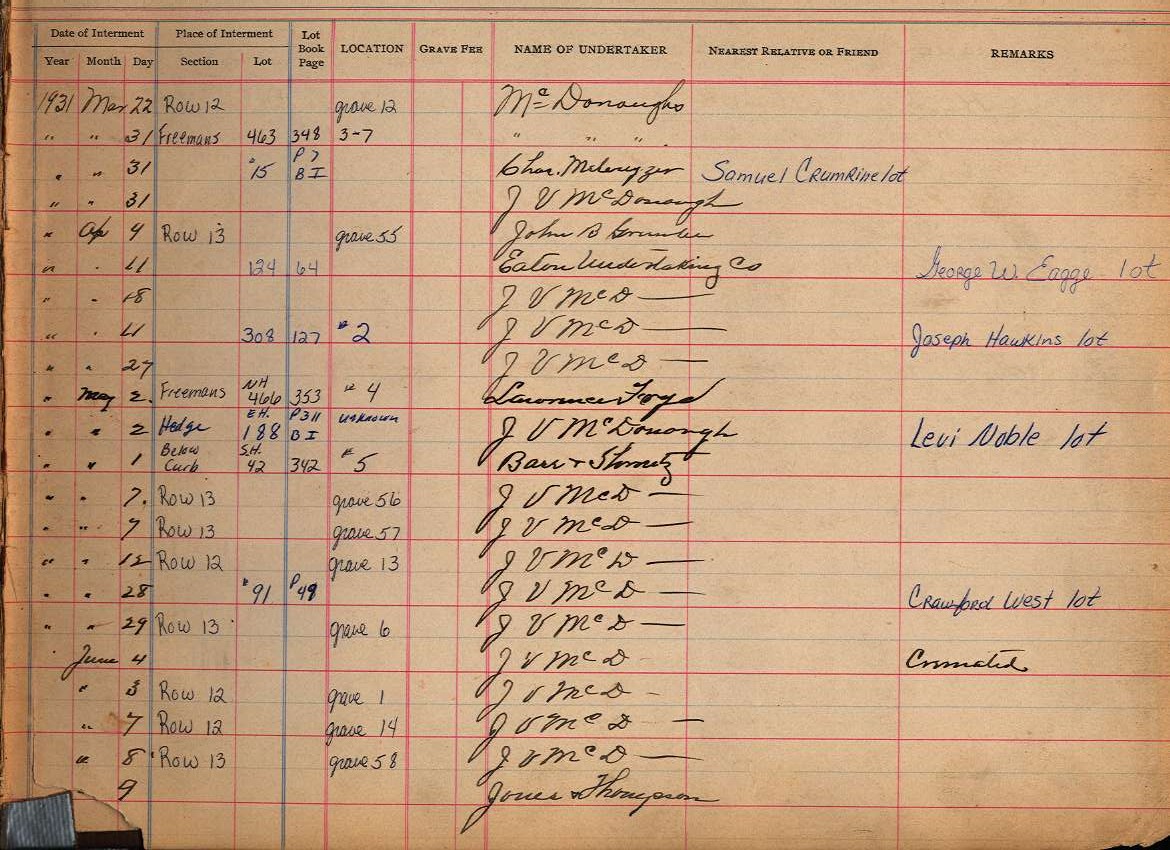 Date of Interment Place of Interment Lot Book Page LOCATION GRAVE FEE NAME OF UNDERTAKER NEAREST RELATIVE OR FRIEND REMARKS
Year Month Day Section Lot
1931 Mar 22 Row 12 grave 12 McDonoughs
" " 31 Freemans 463 348 3-7 " " "
" " 31 " 15 P 7 B I Chas. Samuel Crumrine lot
" " 31 J V McDonough
" Ap 4 Row 13 grave 55 John B
" " 11 124 64 Eaton Undertaking Co George W. Eagge lot
" " 18 J V McD —
" " 11 308 127 # 2 J V McD — Joseph Hawkins lot
" " 27 J V McD —
" May 2. Freemans NH 466 353 # 4 Lawrence
" " 2 Hedge E H. 188 P 311 B I unknown J V McDonough Levi Noble lot
" " 1 Below Curb S.H. 42 342 # 5 Barr +
" " 7. Row 13 grave 56 J V McD —
" " 7 Row 13 grave 57 J V McD —
" " 12 Row 12 grave 13 J V McD —
" " 28 # 91 P 49 J V McD — Crawford West lot
" " 29 Row 13 grave 6 J V McD —
" June 4 J V McD - Cremated
" 3 Row 12 grave 1 J V McD -
" 7 Row 12 grave 14 J V McD —
" 8 Row 13 grave 58 J V McD —
9 Jones & Thompson